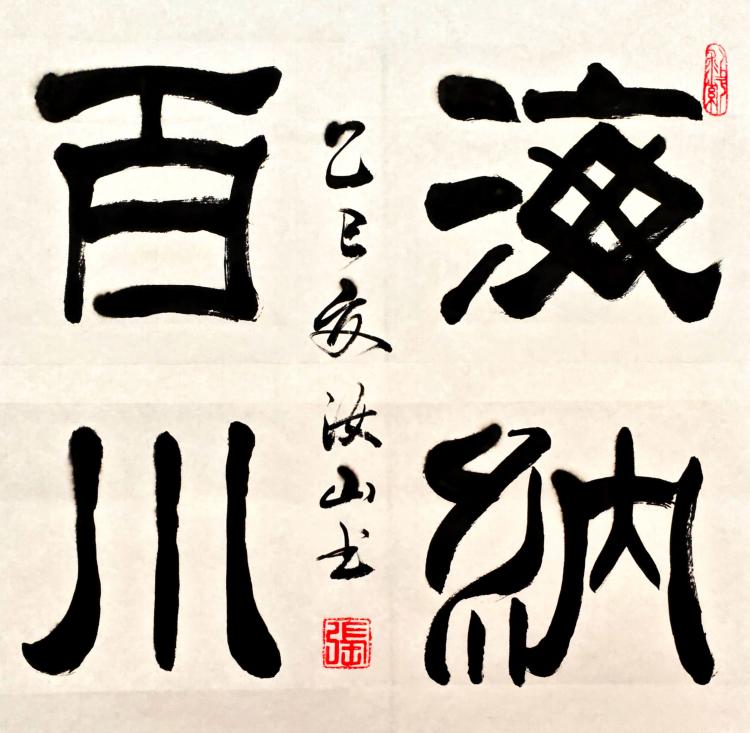 海納
百川
乙巳友汝山书
張